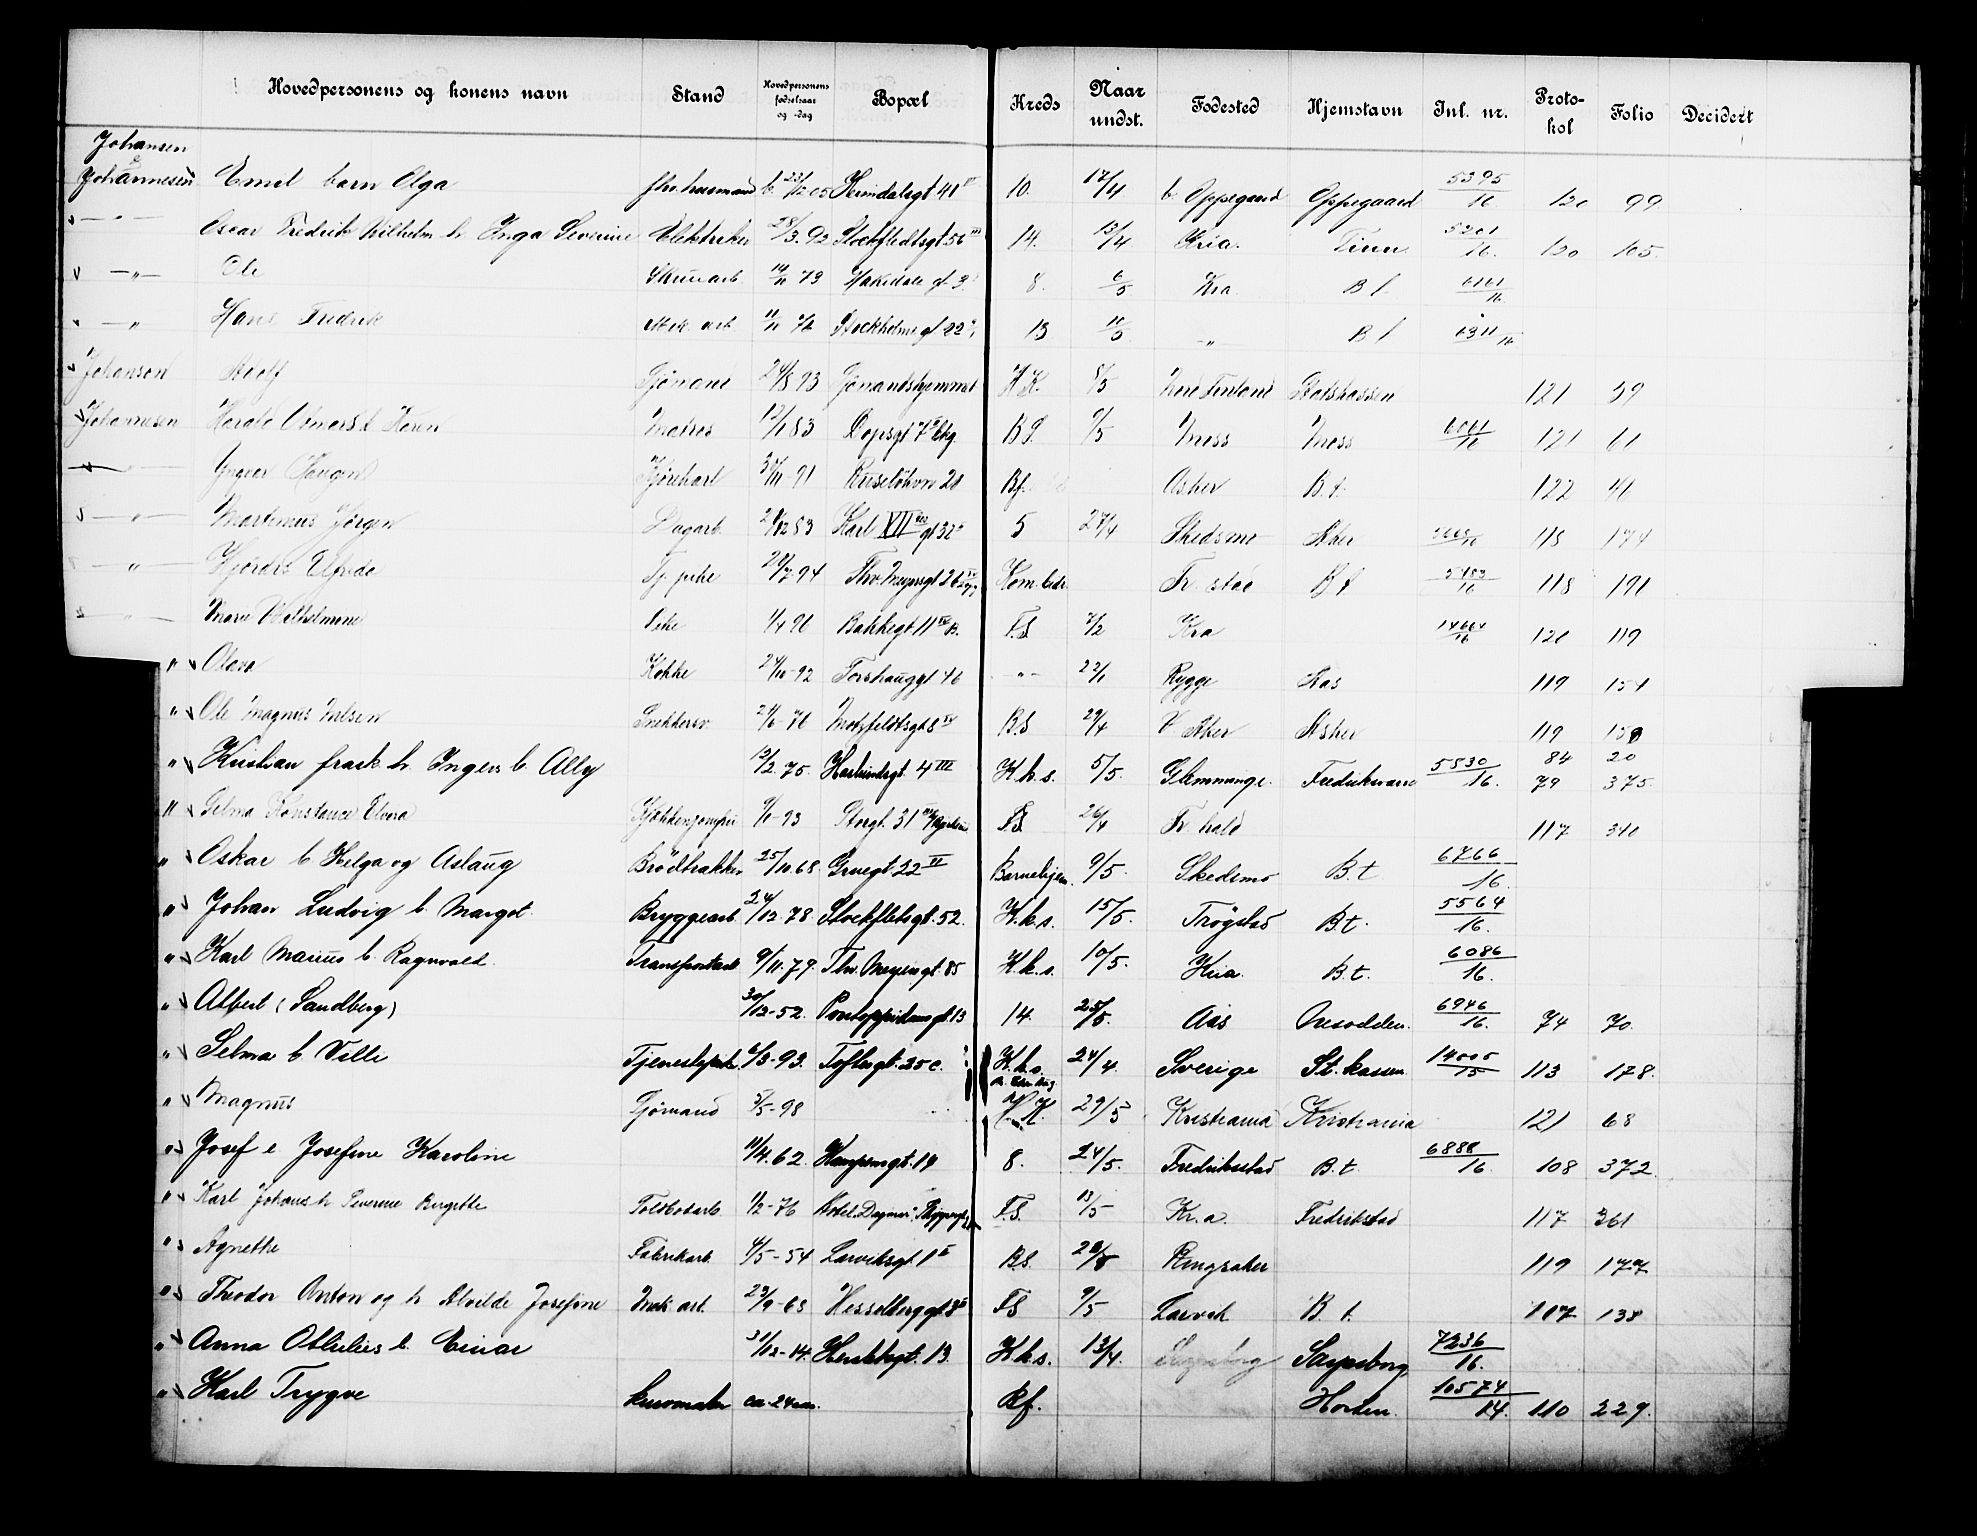 Hovedpersonens og konens navn Stand Hovedpersonens fødselsaar og -dag Bopæl Kreds Naar undst. Fødested Hjemstavn Inl. nr. Proto-kol Folio Decidert
Johansen
Johannesen Emil barn Olga b. 23/12 05 Heimdalsgt 41 10. 17/4 b. Oppegaard Oppegaard 5395/16 120 99
— " — Oscar Fredrik Wilhelm h. Inga Severine Elektriker 28/3. 92 Stockfledtsgt 56 III 14. 13/4 Kria. Tinn. 5201/16. 120 105.
— " — Ole Skruearb. 14/11 73 Hakedals gt 3 8. 6/5 Kra B t 6161/16
— " Hans Fredrik Mek. arb 11/11 72 Stockholms gt 22 13 10/5 — " — B t 6311/16
Johansen Adolf Sjømand 24/8 93 Sjømandshjemmet H.K. 8/5 Statskassen 121 59
Johannesen Harald h. Karen Matros 12/1 83 Dopsgt 7 Bkg. B.S. 9/5 Moss Moss 6061/16 121 61
— " — Yngvar (Haugen) Kjørekarl 11 91 Ruseløkvn 20 Bf. Asker B.t. 122 41
— " — Martinus Jørgen Dagarb. 12 83 Karl XII gt 32 5 27/4 Skedsmo Aker 118 174
— " — Hjørdis Elfrida Tj. pike 20/7 - 94 Thv. Meyersgt 26 Kom. bidr. Fr. stad B t 5483/16 118 191
— " — Marie Wilhelmine Pike 1/4 91 Bakkegt 11 B. F.S 7/2 Kra 14664/16 120 119
" Olava Kokke 24/10 - 92 Torshauggt 46 - " - 22/1 Rygge Raa 119 154
" Ole Magnus Nilsen Snekkersv. 21/6 - 76 Motzfeldtsgt 8 IV B.S 29/4 V. Aker Aker 119 158
" Kristian frask. h. Inger b. Ally 12/2. 75. Haslundsgt. 4 III H.k.s. 5/5. Glemminge. Fredriksværn 5530/16. 84 79 20 375.
" Selma Konstance Elvira Kjøkkenjomfru 9/1 - 93 Storgt. 31 F.S. 26/4 Fr. hald 117 310
" Oskar b Helga og Aslaug Brödbakker 25/10. 68. Gruegt. 22 II Barnehjem. 9/5. Skedsmo B.t 6766/16.
" Johan Ludvig b. Margot. Bryggearb 24/12 - 78 Stockfletsgt. 52. H.k.s. 15/5. Trögstad B.t. 5564/16.
" Karl Marius b. Ragnvald. Transportarb 9/11. 79. Thv. Meyersgt. 85 H.k.s. 10/5. Kria. B.t. 6086/16.
" Albert (Sandberg) 30/12 - 52. Pontoppidansgt. 13 14. 25/5. Aas Nesodden. 6946/16. 74 70.
" Selma b Villi Tjenestepike 6/3 - 93. Toftesgt. 25 c. H.k.s. 24/4. Sverige St. kassen 14005/15 113 178.
" Magnus Sjømand 5/5 - 98 H.K. 29/5 Kristiania Kristiania 121 68
" Josef e Josefine Karoline 11/4. 62. Kampensgt. 19 8. 24/5. Fredriksstad B.t. 6888/16. 108 372.
" Karl Johans h Severine Birgitte Toldbodarb. 1/2 - 76 Hotel. "Dagmar" F.S. 13/5 Kr.a. Fredrikstad 117 361
" Agnethe Fabrikarb. 4/5 - 54 Larviksgt. 1 II B.S. Ringsaker 119 177
" Theodor Anton og h Alvilde Josefine Mek. arb. 23/9 - 63 Hesselberggt. 8 F.S 9/5 Larvik B.t. 107 138
" Anna Ottilies b. Einar 31/12 - 14. Herslebsgt. 13 H.k.s. 13/4. Sarpsborg Sarpsborg 7236/16.
" Karl Trygve kurvmaker ca. 24 aar. Rf. Horten. 10574/14. 110 229.